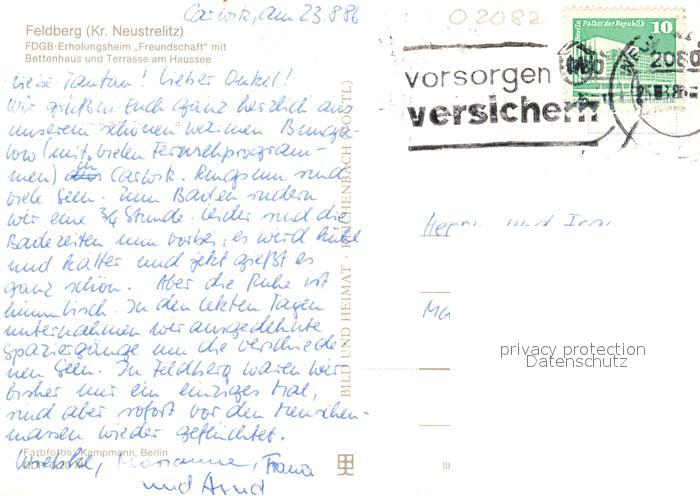 Carwitz, am 23.8.86
02082
Feldberg (Kr. Neustrelitz)
FDGB-Erholungsheim „Freundschaft" mit
Bettenhaus und Terrasse am Haussee
Berlin Palast der Republik
10
DDR
2080
vorsorgen
versichern
Liebe Tantan! Lieber Onkel!
Wir grüßen Euch ganz herzlich aus
unserem schönen warmen Bunga-
low (mit vielen Fernsehprogram-
men) in Carwitz. Ringsum sind
viele Seen. Zum Baden rudern
wir eine ¾ Stunde. Leider sind die
Badezeiten nun vorbei; es wird kühl
und kälter und jetzt gießt es
ganz schön. Aber die Ruhe ist
himmlisch. In den letzten Tagen
unternahmen wir ausgedehnte
Spaziergänge um die verschiede-
nen Seen. In Feldberg waren wir
bisher nur ein einziges Mal,
sind aber sofort vor den Menschen-
massen wieder geflüchtet.
Marianne,
und Arnd
Farbfotos: Kampmann, Berlin
BILD UND HEIMAT · REICHENBACH (VOGTL)
Herrn und Frau
privacy protection
Datenschutz